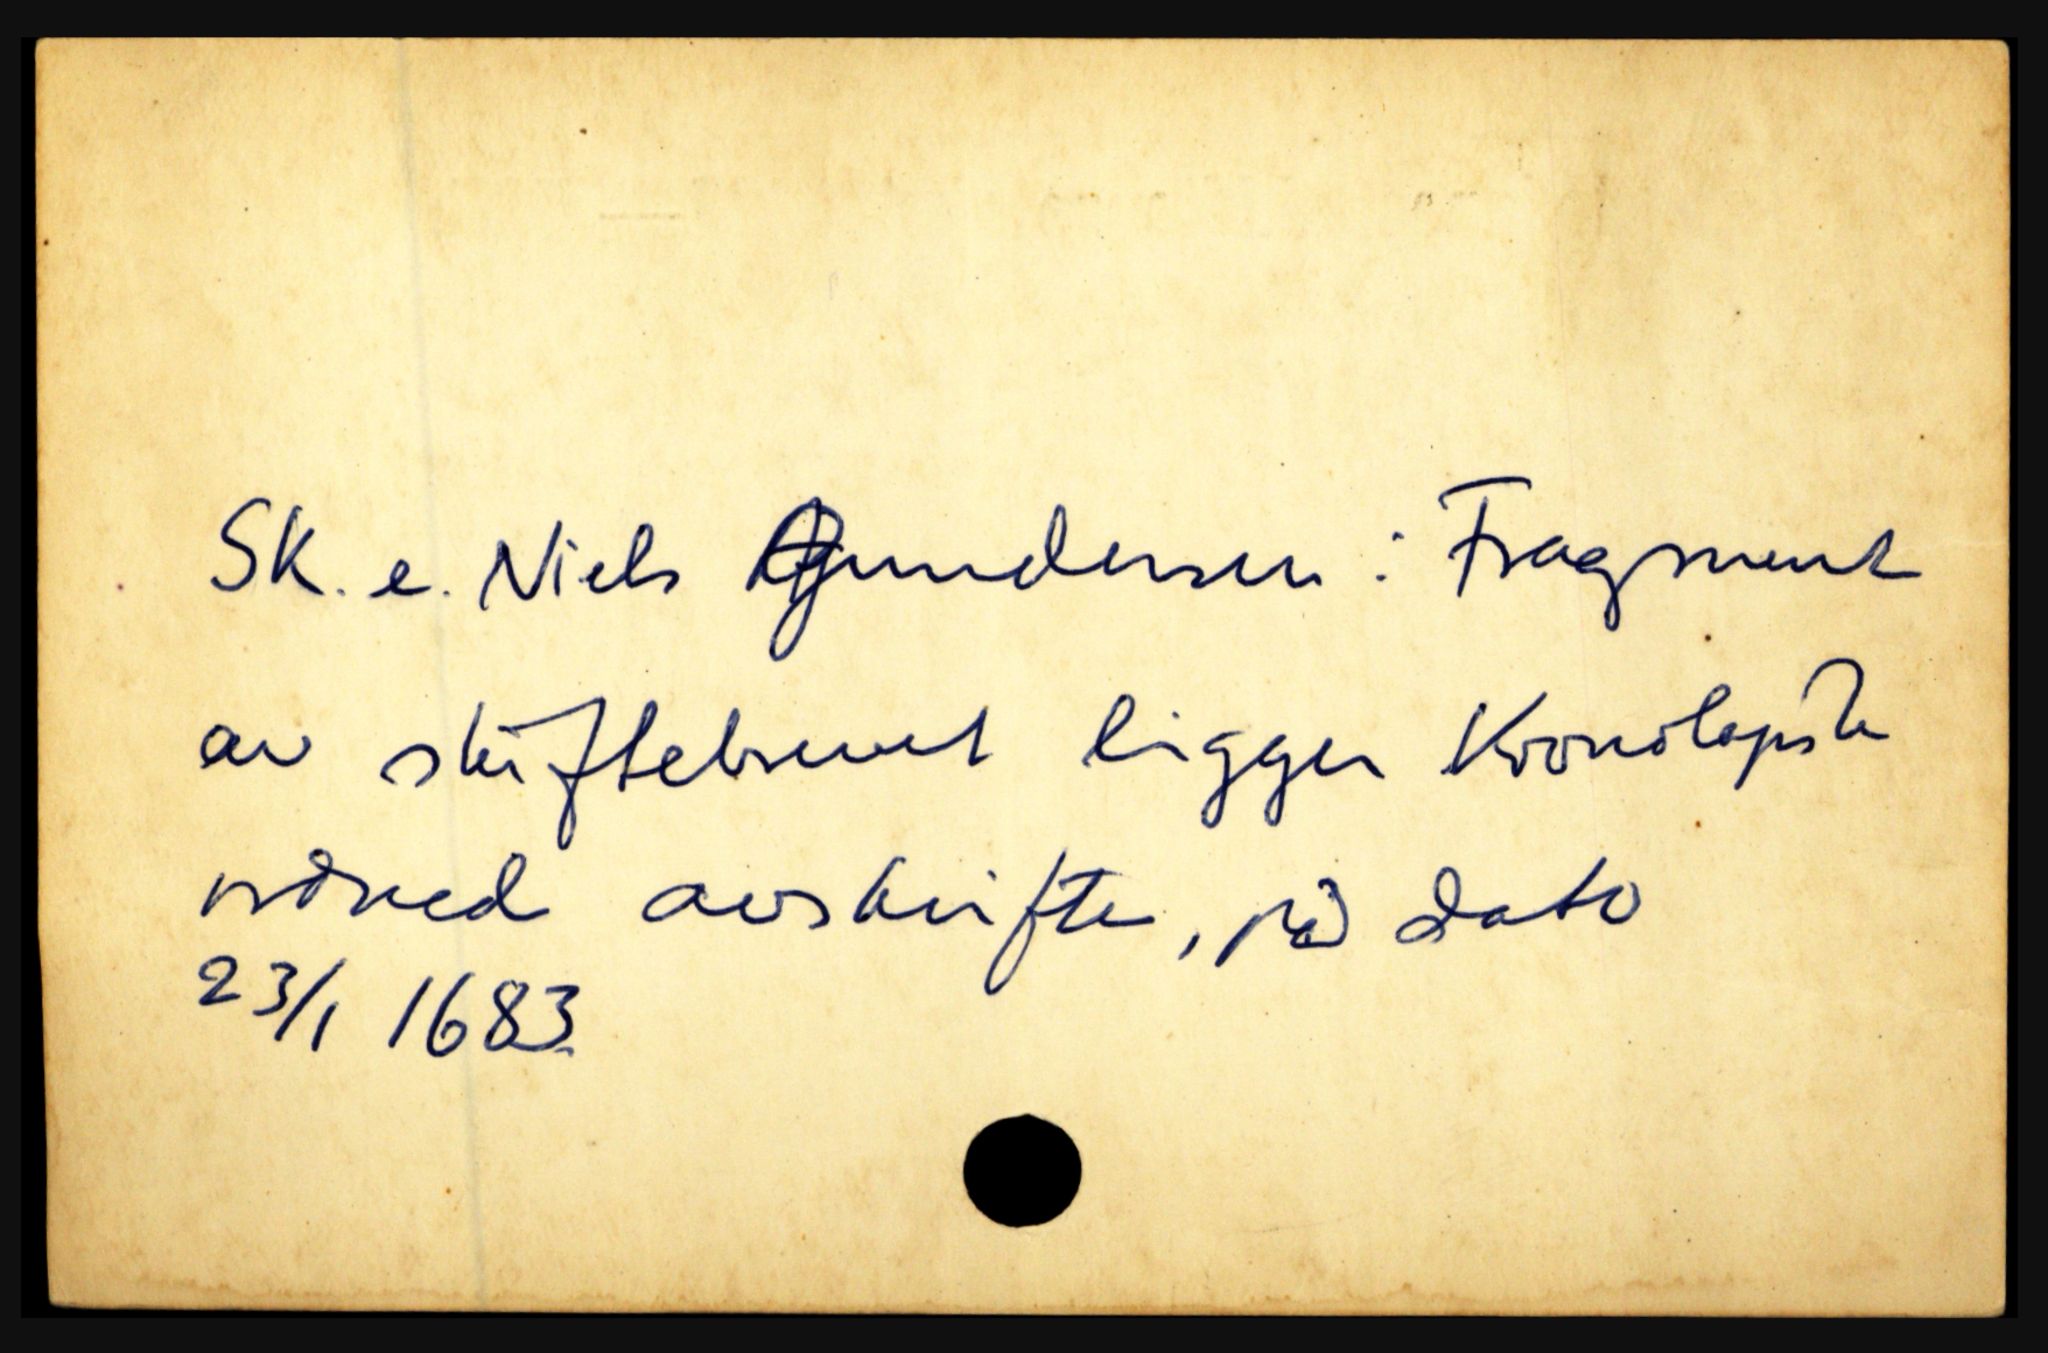 SK. e. Niels Gundersen : Fragment
av skiftebrevet ligger Kronologisk
ordned avskrifter, på dato
23/1 1683.